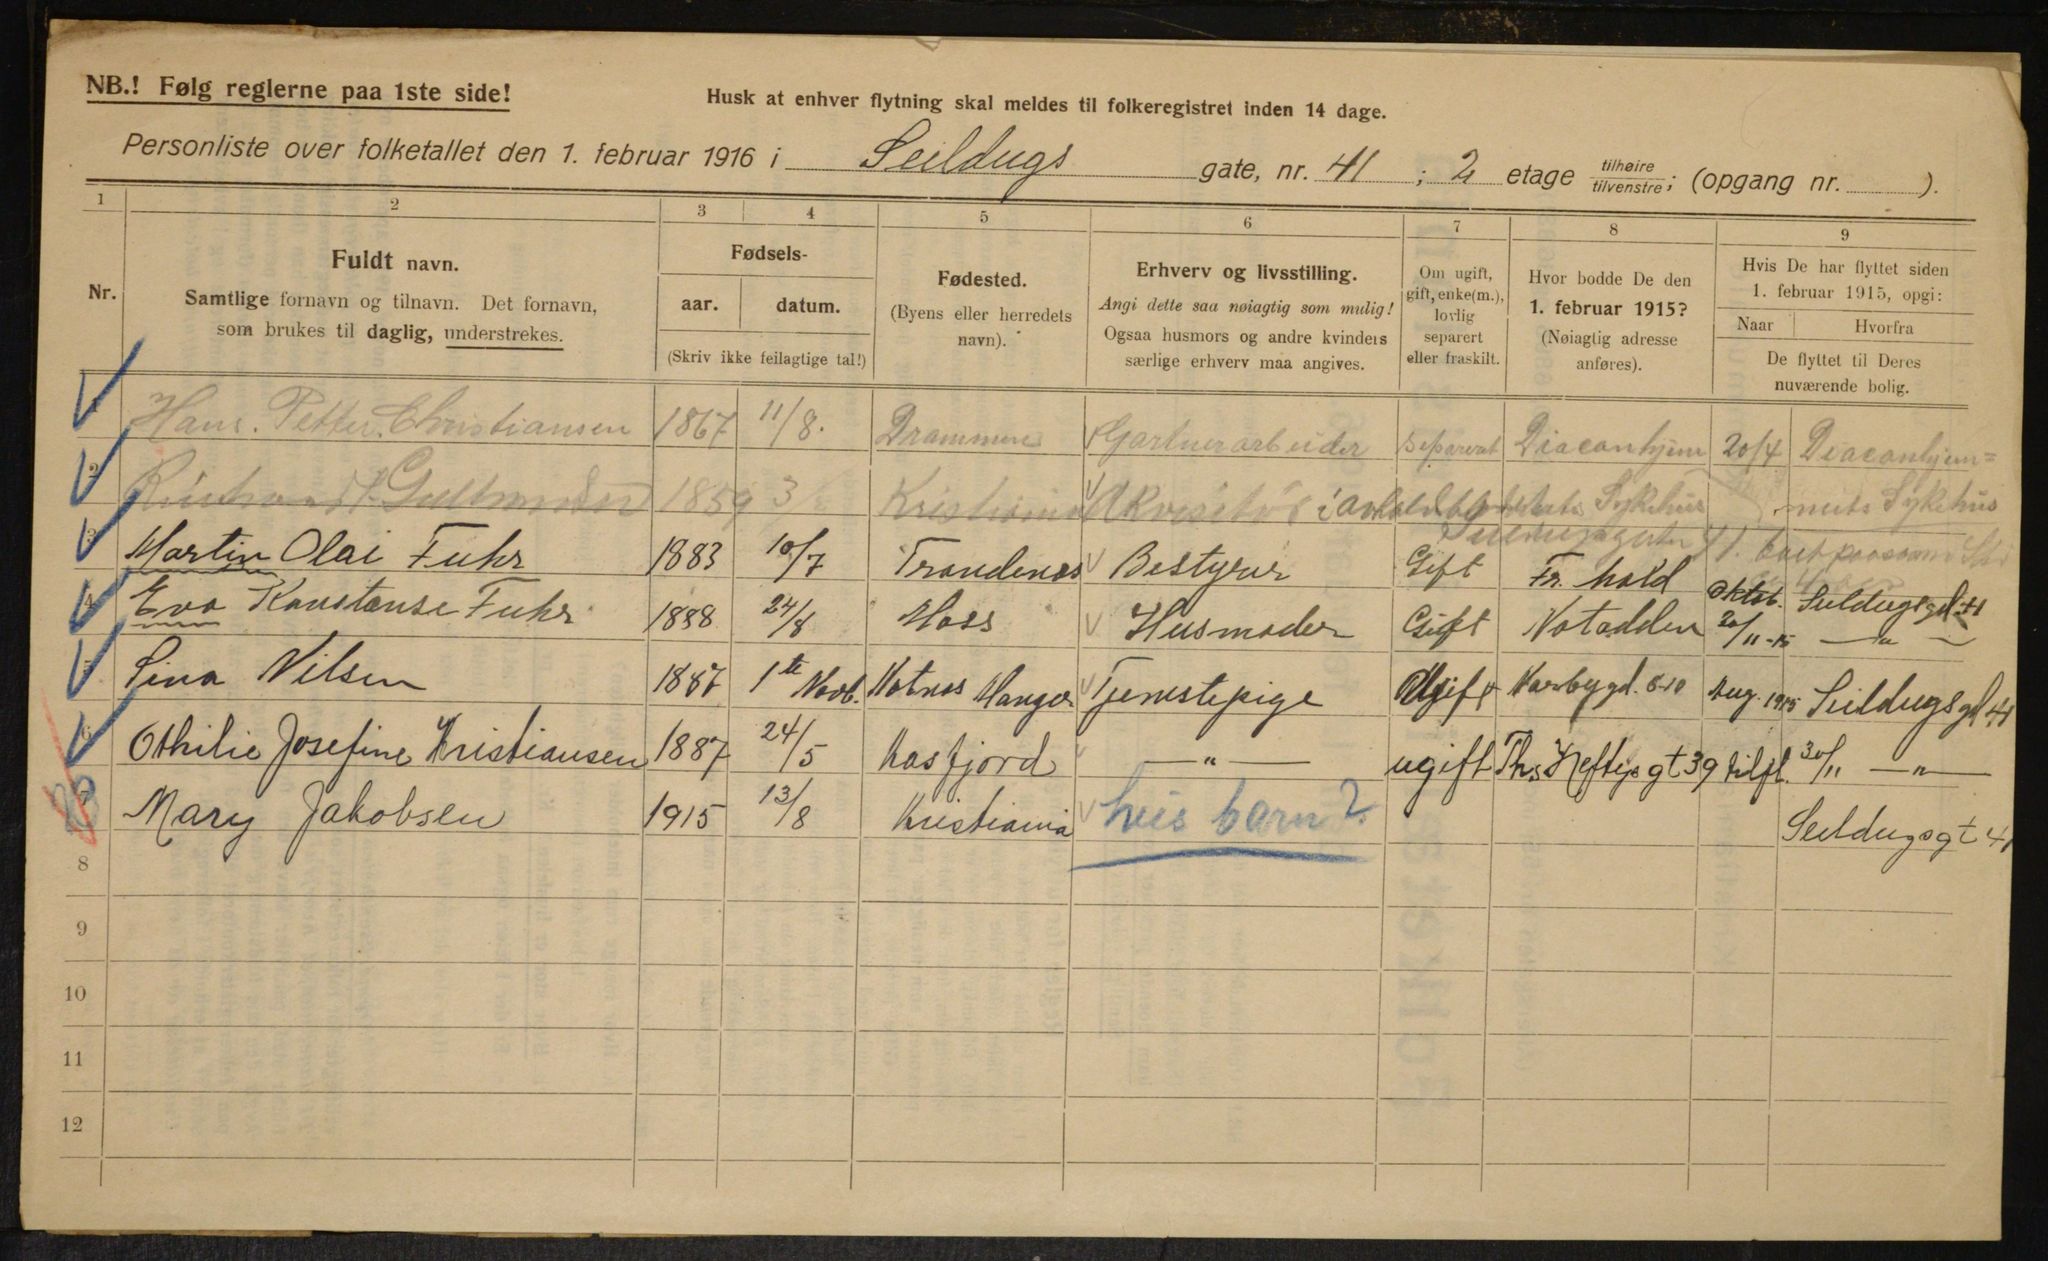 NB.! Følg reglerne paa 1ste side!
Husk at enhver flytning skal meldes til folkeregistret inden 14 dage.
Personliste over folketallet den 1. februar 1916 i Seildugs gate, nr. 41 ; 2 etage tilhøire/tilvenstre; (opgang nr. ).
1 2 3 4 5 6 7 8 9
Nr.
Fuldt navn.
Samtlige fornavn og tilnavn. Det fornavn, som brukes til daglig, understrekes.
Fødsels-
aar. datum.
(Skriv ikke feilagtige tal!)
Fødested.
(Byens eller herredets navn).
Erhverv og livsstilling.
Angi dette saa nøiagtig som mulig!
Ogsaa husmors og andre kvinders særlige erhverv maa angives.
Om ugift, gift, enke(m.), lovlig separert eller fraskilt.
Hvor bodde De den 1. februar 1915?
(Nøiagtig adresse anføres).
Hvis De har flyttet siden 1. februar 1915, opgi:
Naar Hvorfra
De flyttet til Deres nuværende bolig.
Hans. Petter. Christiansen 1867 11/8. Drammen Gartnerarbeider separert Diaconhjem 20/4 Diaconhjem=
2 1859 3 Kristiania Akvisitør i Sykehus mets Sykehus
3 Martin Olai Fuhr 1883 10/7 Trondenes Bestyrer Gift Fr. hald Oktob. Seildugsgd. 41
4 Eva Konstanse Fuhr 1888 24/8 Moss Husmoder Gift Notodden 20/11-15 — " —
5 Lina Nilsen 1887 1te Novb. Hotnes Manger Tjenestepige Ugift Aug. 1915 Seildugsgd 41
6 Othilie Josefine Kristiansen 1887 24/5 Kasfjord — " — ugift Ths Heftys gt 39 tilfl. 30/11 — " —
7 Mary Jakobsen 1915 13/8 Kristiania hvis barn? Seildugsgt 41
8
9
10
11
12